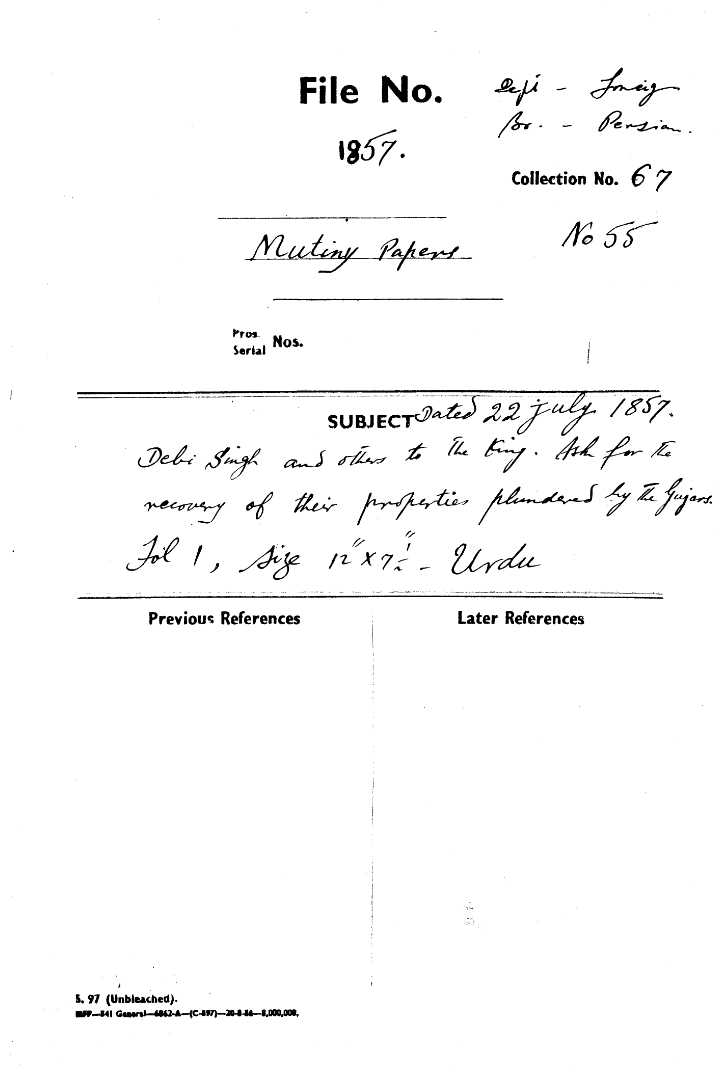 File No.
Dept - Foreig
Br. - Persian.
1857.
Collection No. 67
No 55
Mutiny Papers
Pros.
Serial Nos.
SUBJECT Dated 22 July 1857.
Debi Singh and others to the King. Ask for the
recovery of their properties plundered by the Gujars.
Fol 1, Size 12" x 7½" - Urdu
Previous References
Later References
S. 97 (Unbleached).
MFP—841 General—6862-A—(C-897)—20-8-56—8,000,000.